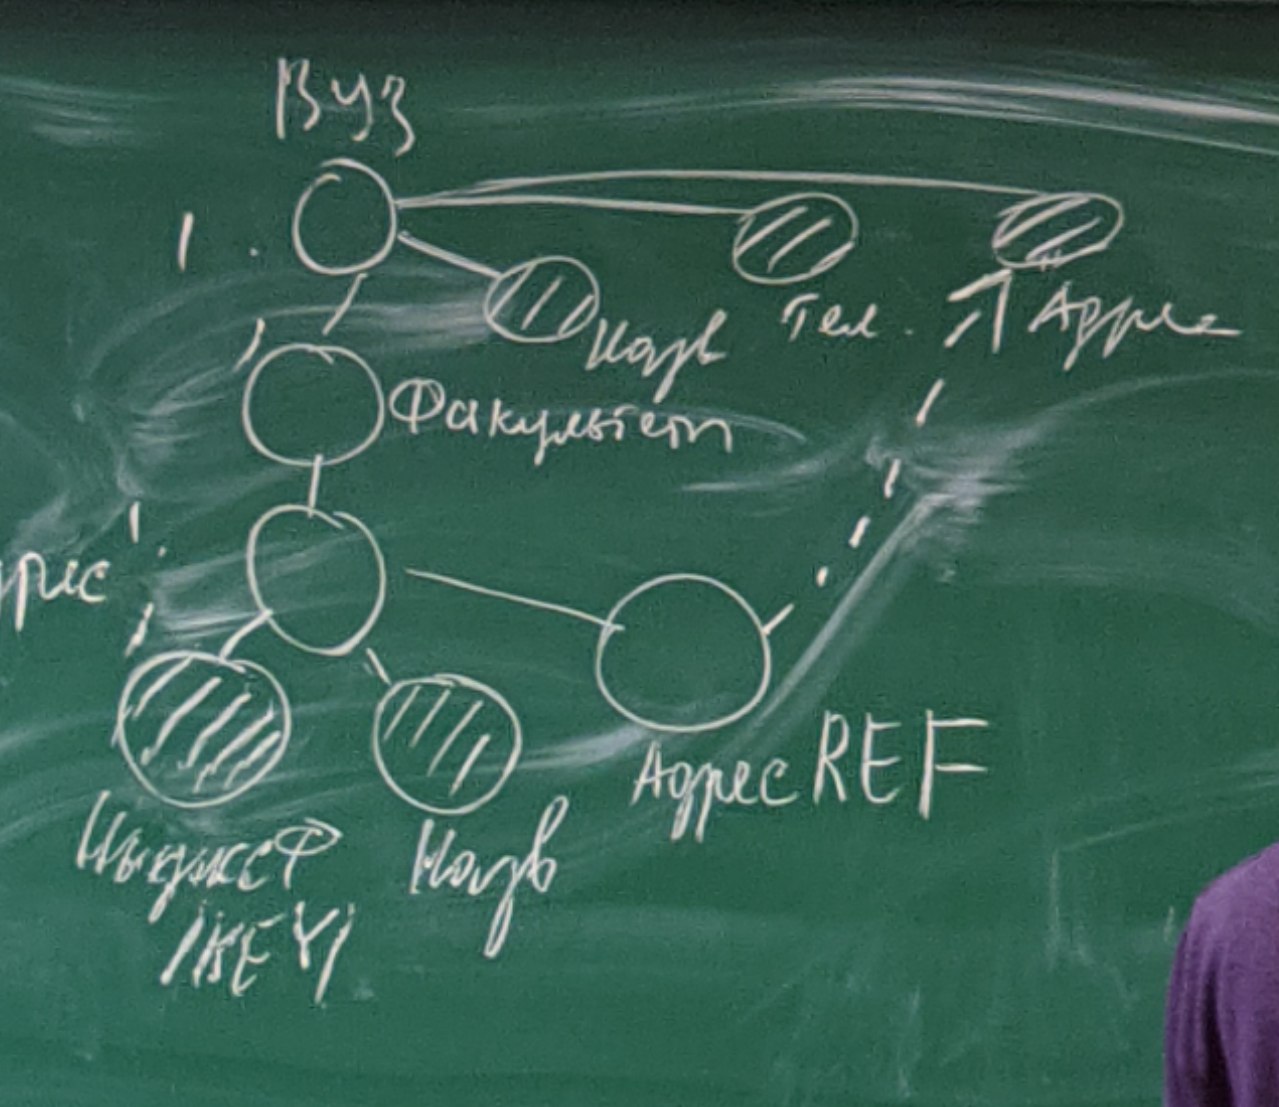 ВУЗ
1.
Назв
Тел.
Адрес
Факультет
рес
Адрес REF
Индекс Ф
/KEY/
Назв